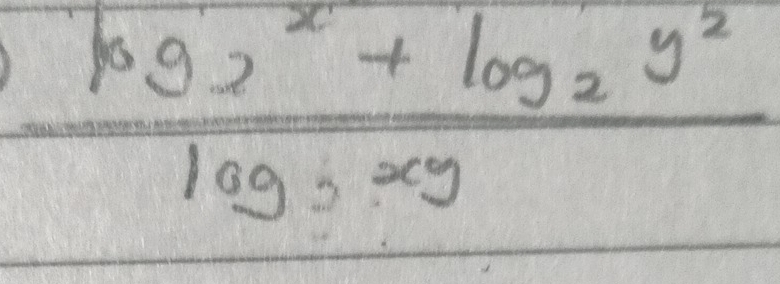 ) log₂ x + log₂ y²
log₂ xy